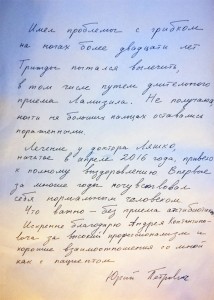 Имел проблемы с грибком
на ногах более двадцати лет
Трижды пытался вылечить,
в том числе путем длительного
приема Ламизила. Не получалось
ногти на больших пальцах оставались
пораженными.
Лечение у доктора Ляшко,
начатое в апреле 2016 года, привело
к полному выздоровлению Впервые
за многие годы почувствовал
себя нормальным человеком.
Что важно – без приема антибиотиков
Искренне благодарю Андрея Константино-
вича за высокий профессионализм и
хорошие взаимоотношения со мной
как с пациентом.
Юрий Петрович